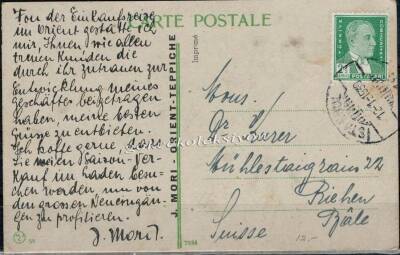 CARTE POSTALE
Imprimé
Von der Einkaufsreise
im Orient gestatte ich
mir, Ihnen wie allen
treuen Kunden die
durch ihr zutrauen zur
Entwicklung meines
Geschäftes beigetragen
haben, meine besten
Grüsse zu entbieten.
Ich hoffe gerne, dass
Sie meinen Saison-Ver-
kauf im Laden besu-
chen werden, um von
den grossen Neueingän-
gen zu profitieren.
J. Mori.
J. MORI - ORIENT-TEPPICHE
TÜRKIYE
CUMHURIYETI
POSTALARI
ISTANBUL
Mons.
Dr
Mühlestiegrain 22
Riehen
Bâle
Suisse
12.-